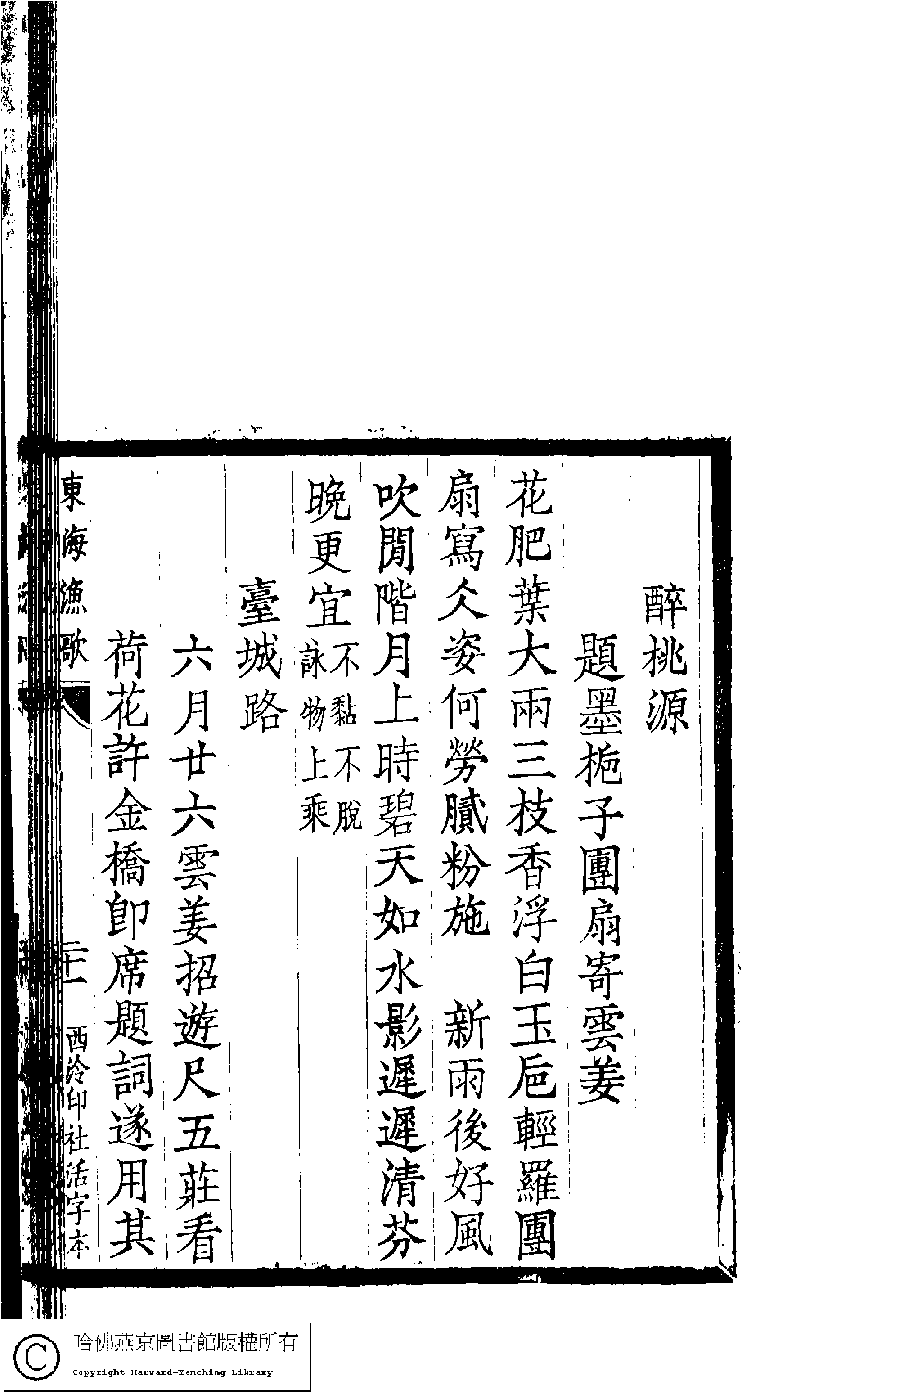 醉桃源
題墨梔子團扇寄雲姜
花肥葉大兩三枝香浮白玉巵輕羅團
扇寫仌姿何勞膩粉施　新雨後好風
吹閒階月上時碧天如水影遲遲清芬
晚更宜不黏不脫
詠物上乘
臺城路
六月廿六雲姜招遊尺五莊看
荷花許金橋卽席題詞遂用其
東海漁歌
二十一
西泠印社活字本
哈佛燕京圖書館版權所有
Copyright Harvard-Yenching Library